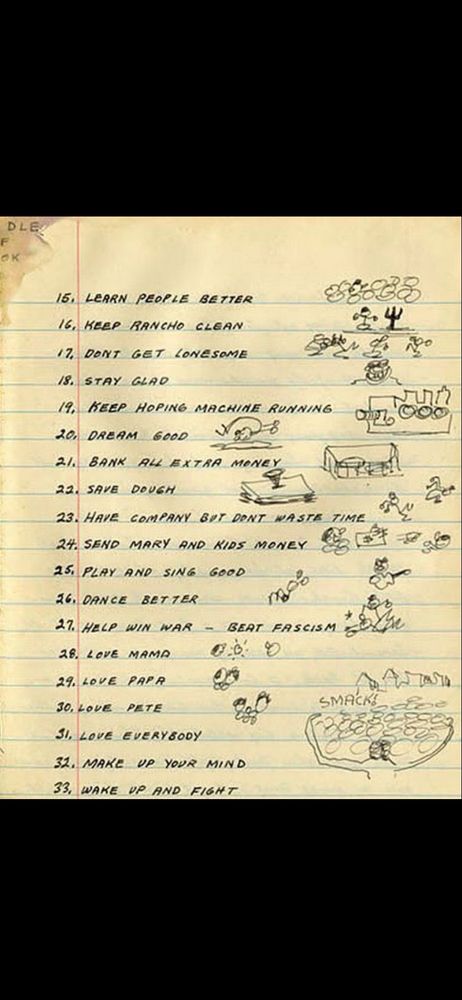 DLE
F
OK
15. LEARN PEOPLE BETTER
16. KEEP RANCHO CLEAN
17. DONT GET LONESOME
18. STAY GLAD
19. KEEP HOPING MACHINE RUNNING
20. DREAM GOOD
21. BANK ALL EXTRA MONEY
22. SAVE DOUGH
23. HAVE COMPANY BUT DONT WASTE TIME
24. SEND MARY AND KIDS MONEY
25. PLAY AND SING GOOD
26. DANCE BETTER
27. HELP WIN WAR - BEAT FASCISM
28. LOVE MAMA
29. LOVE PAPA
30. LOVE PETE
SMACK!
31. LOVE EVERYBODY
32. MAKE UP YOUR MIND
33. WAKE UP AND FIGHT